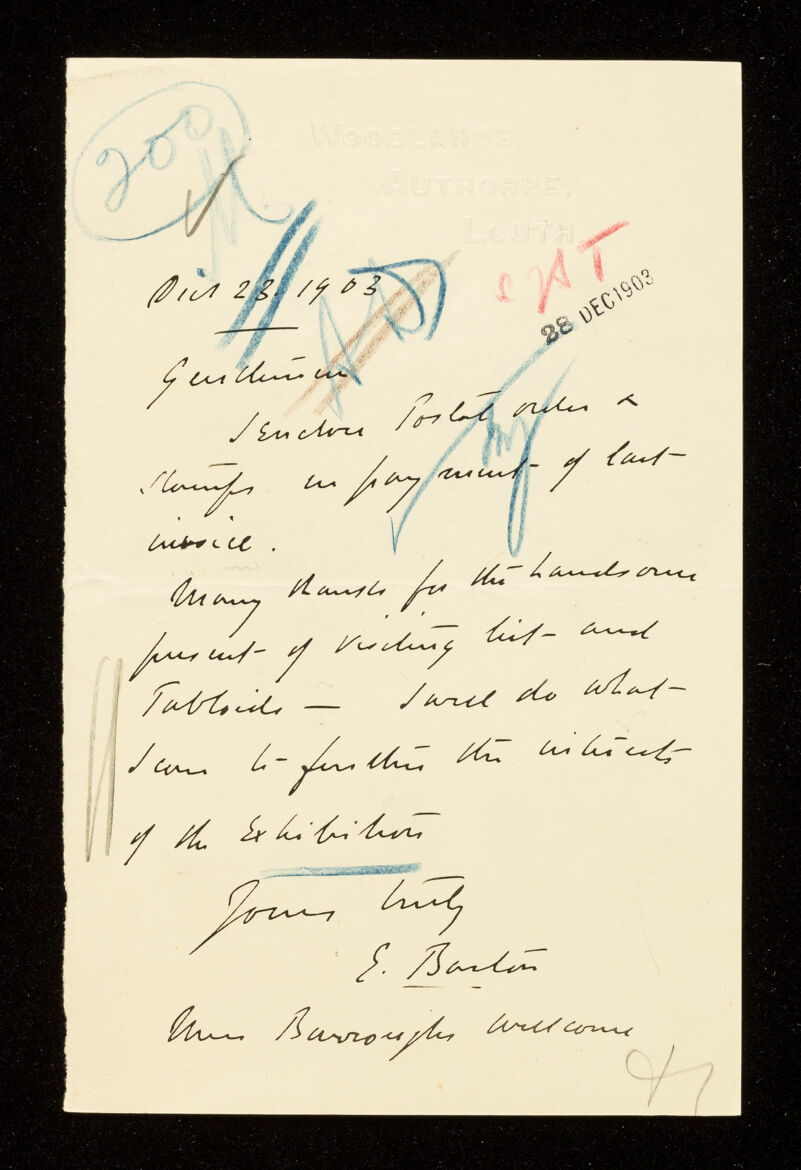 200
WOODLANDS,
AUTHORPE,
LOUTH
28 DEC 1903
Dec 23. 1903
Gentlemen
I enclose Postal order &
stamps in payment of last
invoice.
Many thanks for the handsome
present of visiting list and
Tabloids — I will do what
I can to further the interests
of the Exhibition
Yours truly
E. Barton
Messrs Burroughs Wellcome